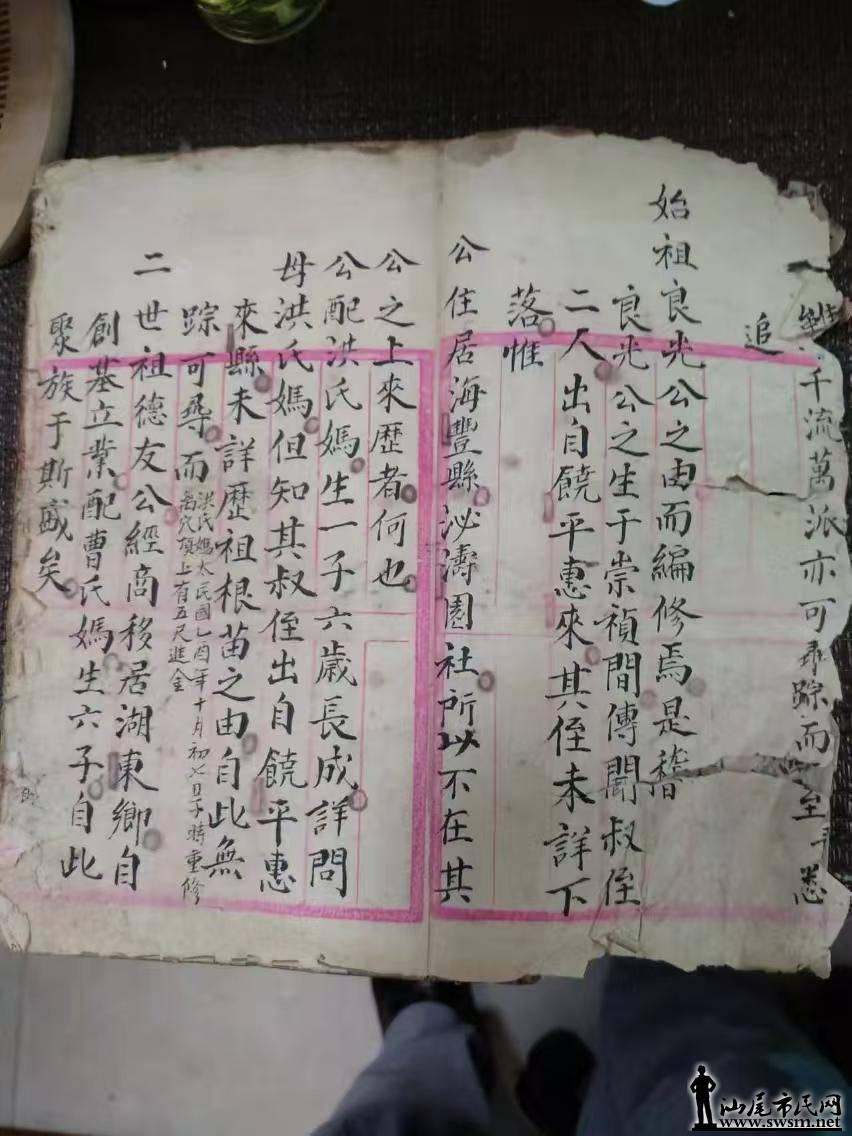 雖千流萬派亦可尋踪而至耳
追
始祖良光公之由而編修焉是譜
良光公之生于崇禎間傳聞叔侄
二人出自饒平惠來其侄未詳下
落惟
公住居海豐縣泌濤園社所以不在其
公之上來歷者何也
公配洪氏媽生一子六歲長成詳問
母洪氏媽但知其叔侄出自饒平惠
來縣未詳歷祖根苗之由自此無
踪可尋而
洪氏媽太民國乙酉年十月初七日子時重修
穴項上有五尺進金
二世祖德友公經商移居湖東鄉自
創基立業配曹氏媽生六子自此
聚族于斯盛矣
汕尾市民网
www.swsm.net